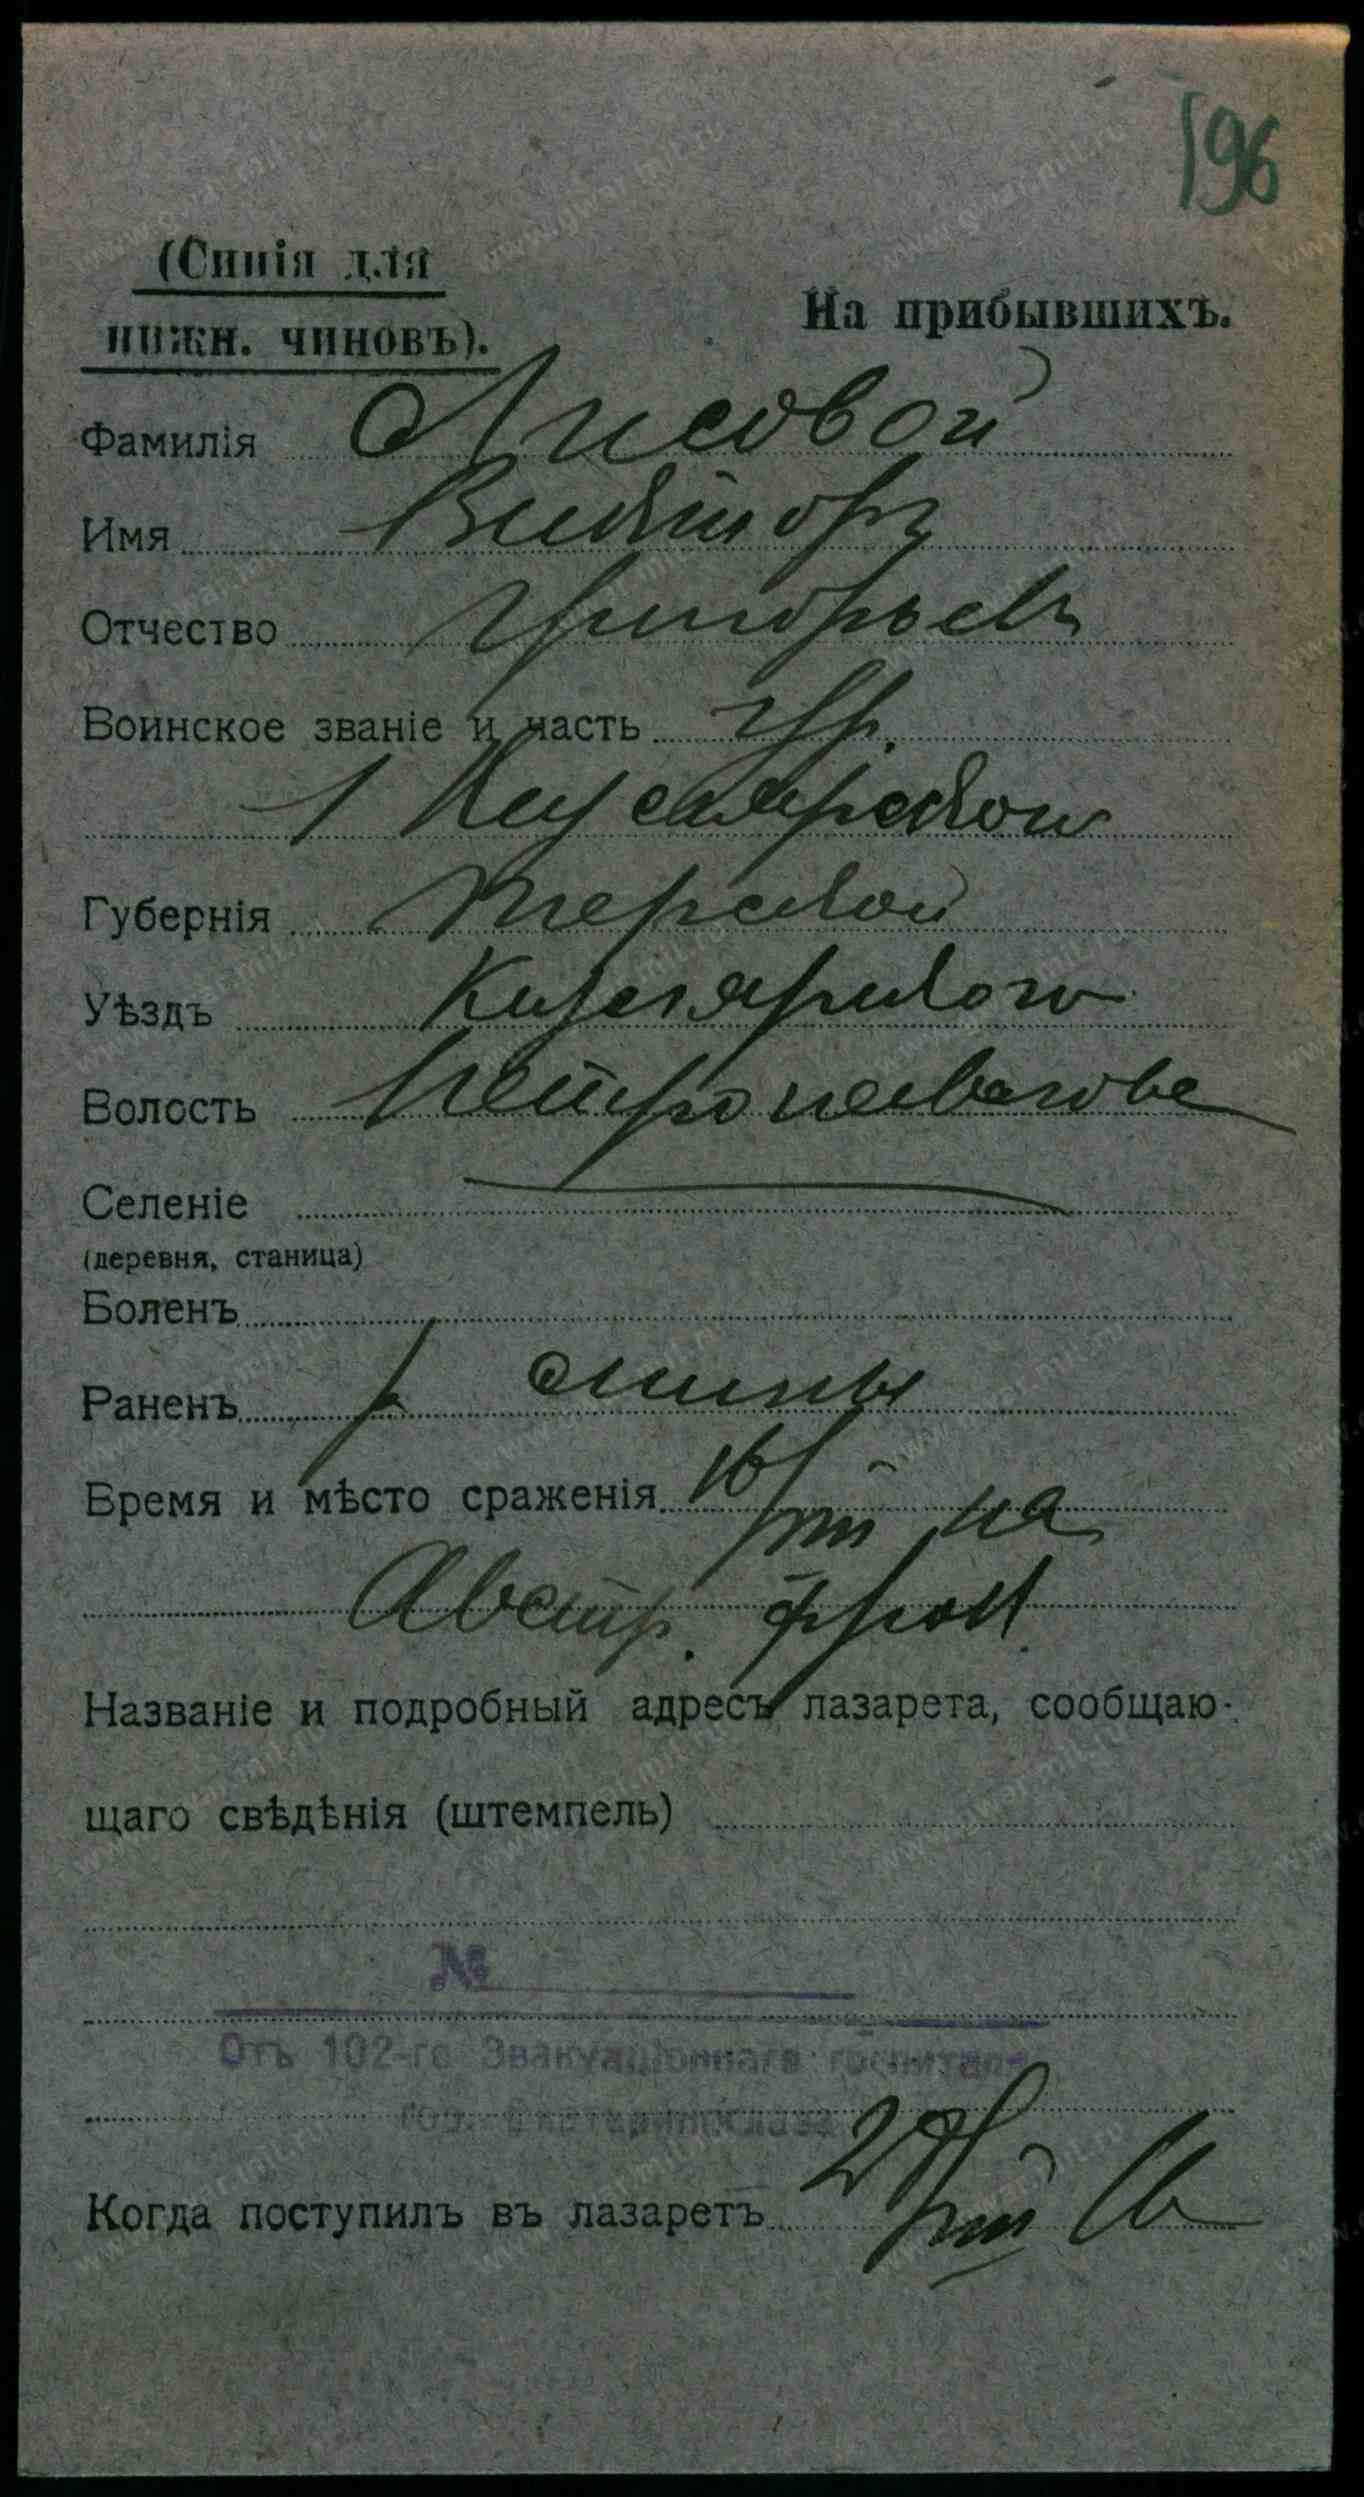 196
(Синія для
нижн. чиновъ).
На прибывшихъ.
Фамилія Лисовой
Имя Викторъ
Отчество Григорьевъ
Воинское званіе и часть
1
Губернія Терской
Уѣздъ Кизлярского
Волость
Селеніе
(деревня, станица)
Боленъ
Раненъ р спины
Время и мѣсто сраженія 16/VIII на
Австр. фрон.
Названіе и подробный адресъ лазарета, сообщаю-
щаго свѣдѣнія (штемпель)
№
Отъ 102-го Эвакуаціоннаго госпиталя
гор. Екатеринослава
Когда поступилъ въ лазаретъ